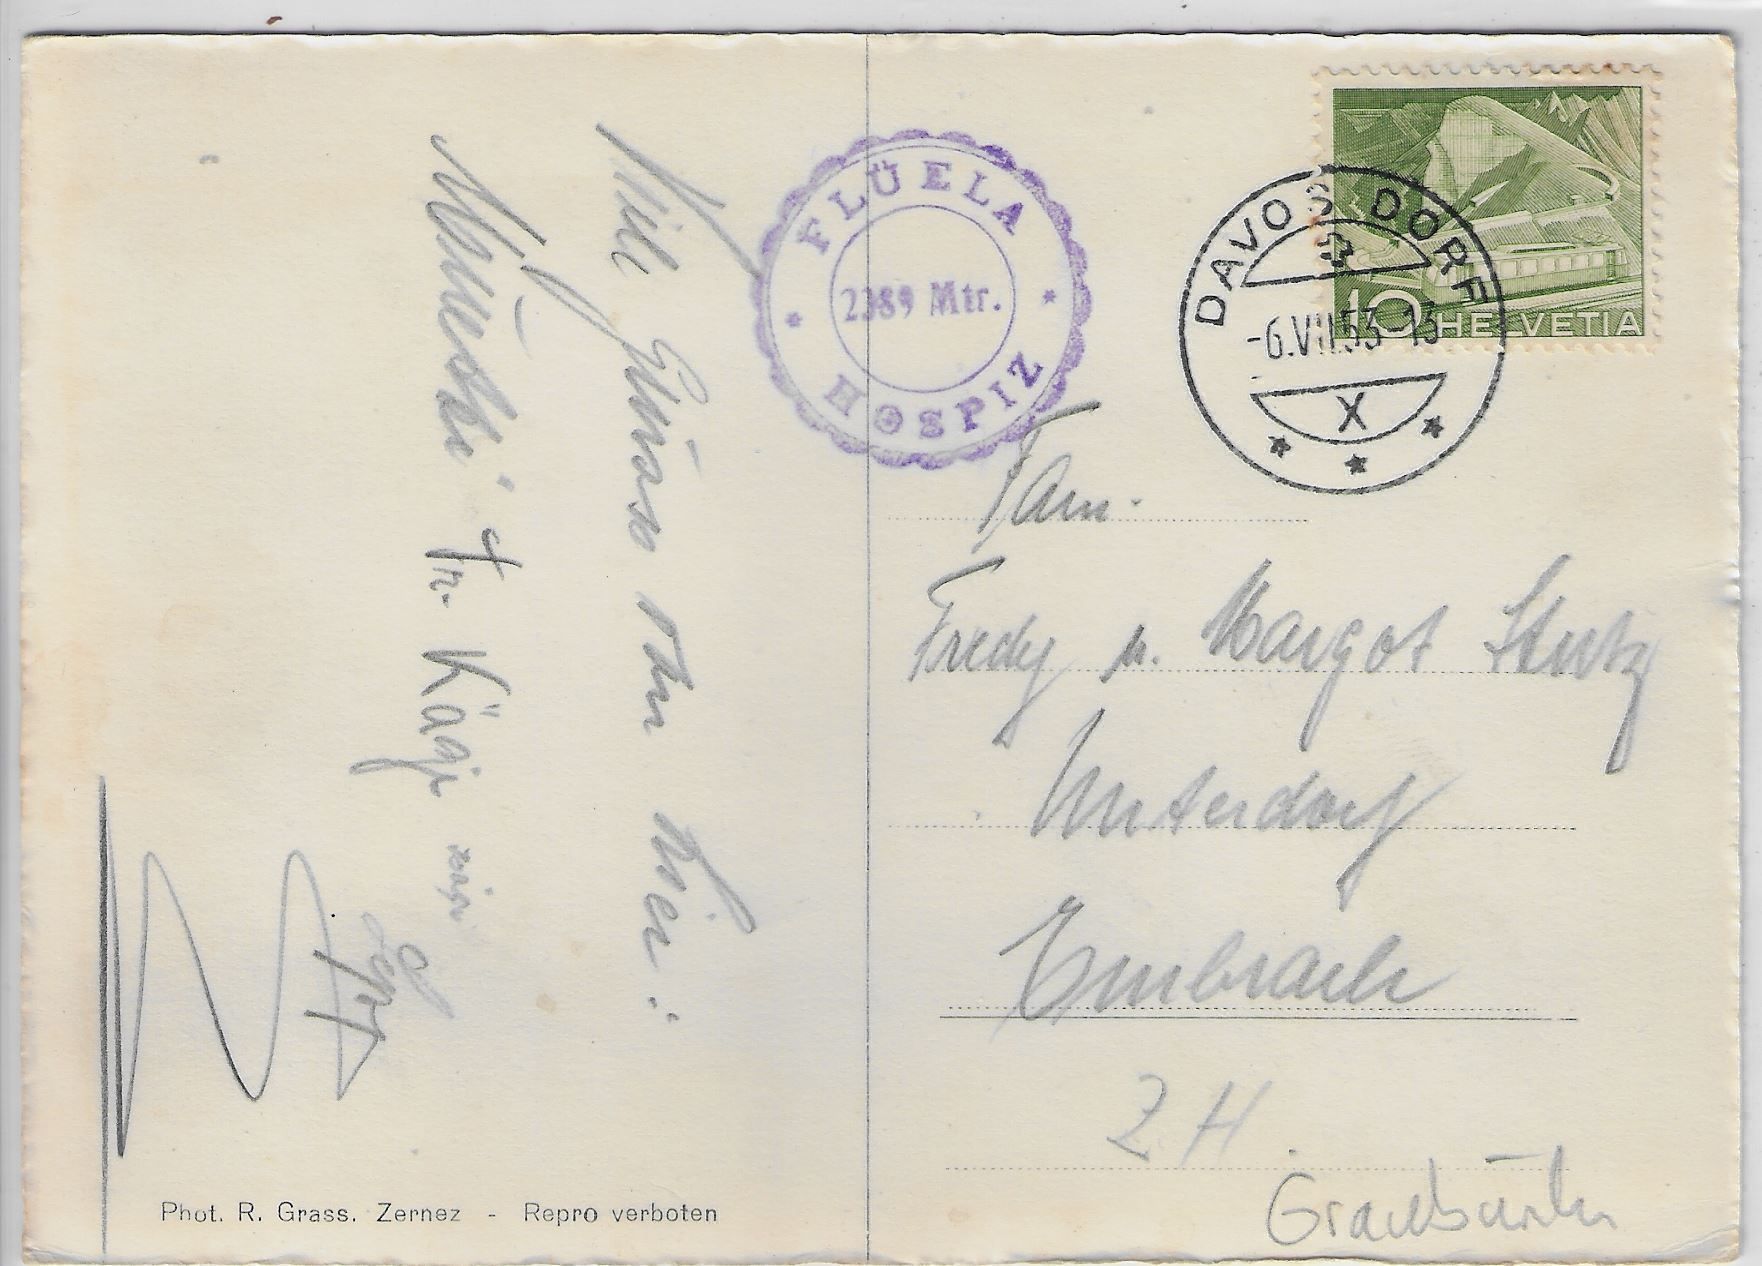 Viel Grüsse von hier:
Fr. Käsp
FLÜELA
2389 Mtr.
HOSPIZ
DAVOS DORF
-6.VII.53-13
X
10 HELVETIA
Fam.
Fredy u. Margot Stutz
Unterdorf
Embrach
ZH.
Graubünden
Phot. R. Grass. Zernez - Repro verboten